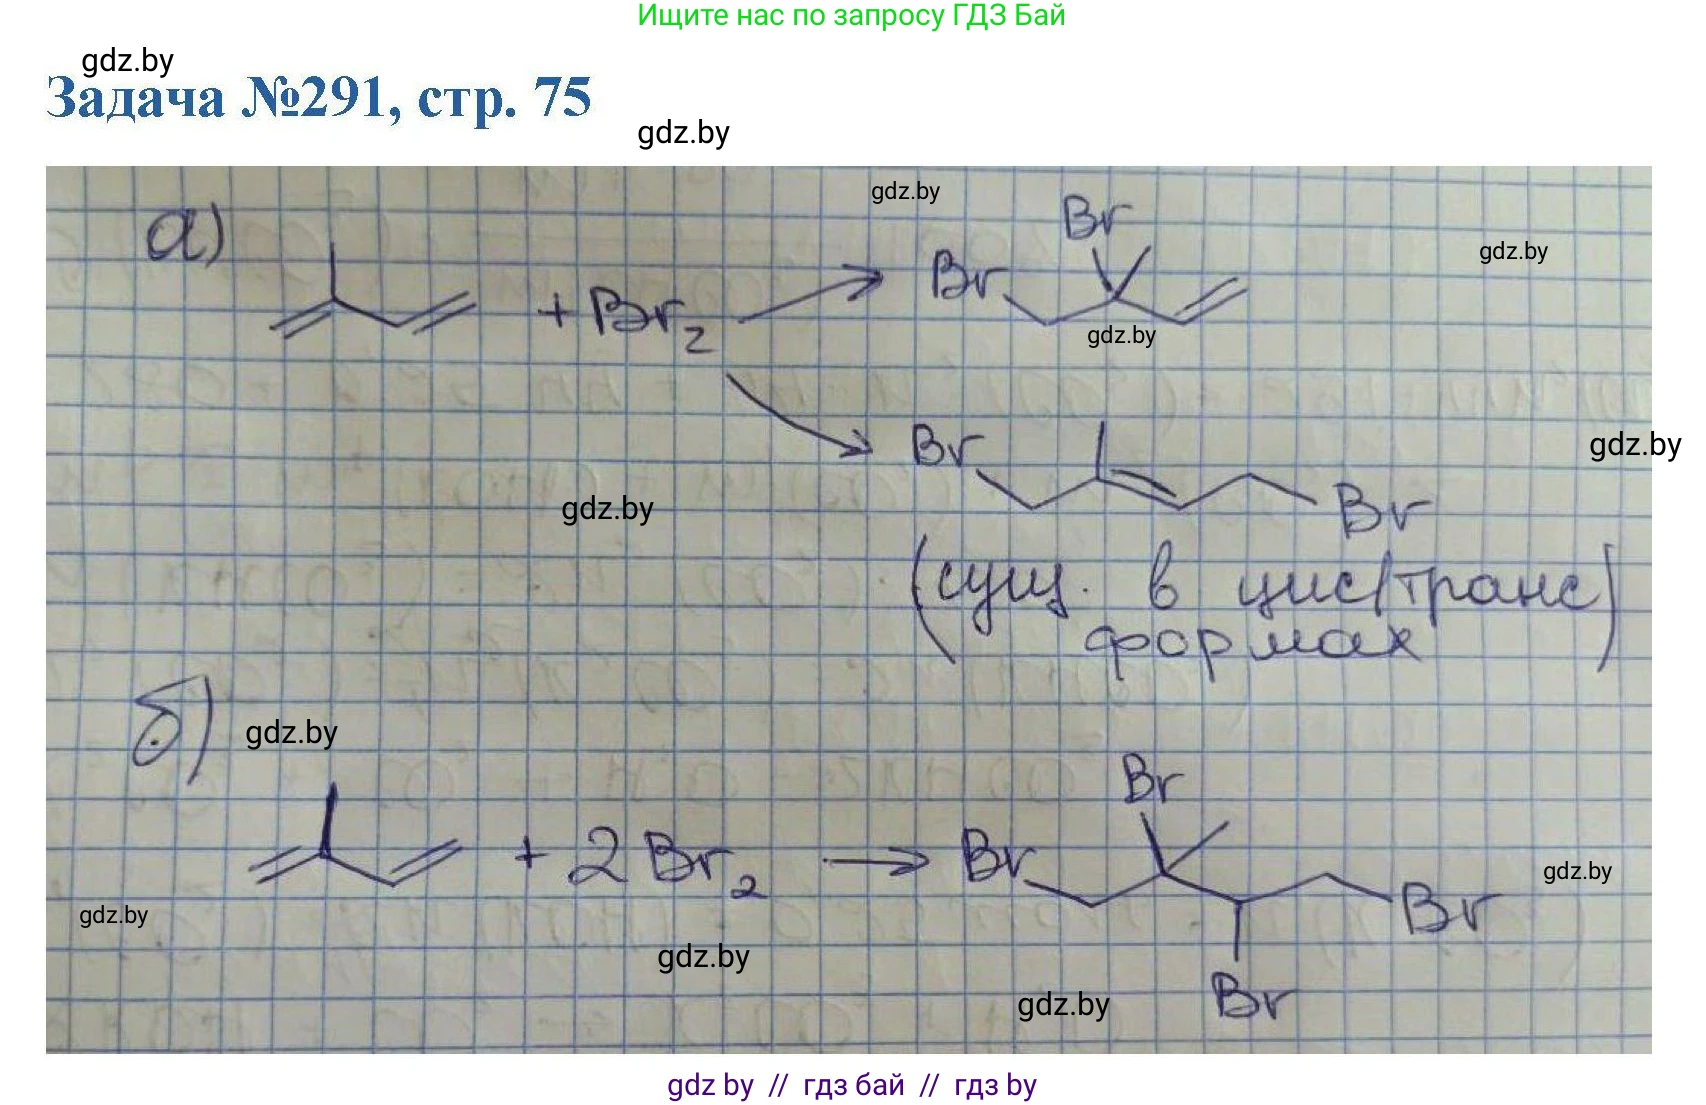 Ищите нас по запросу ГДЗ Бай
gdz.by
Задача №291, стр. 75
gdz.by
gdz.by
а)
Br
gdz.by
Br
+ Br₂
gdz.by
Br
gdz.by
gdz.by
Br
(сущ. в цис/транс)
формах
б)
gdz.by
Br
+ 2 Br₂
Br
gdz.by
Br
gdz.by
gdz.by
Br
gdz.by
gdz by // гдз бай // гдз by